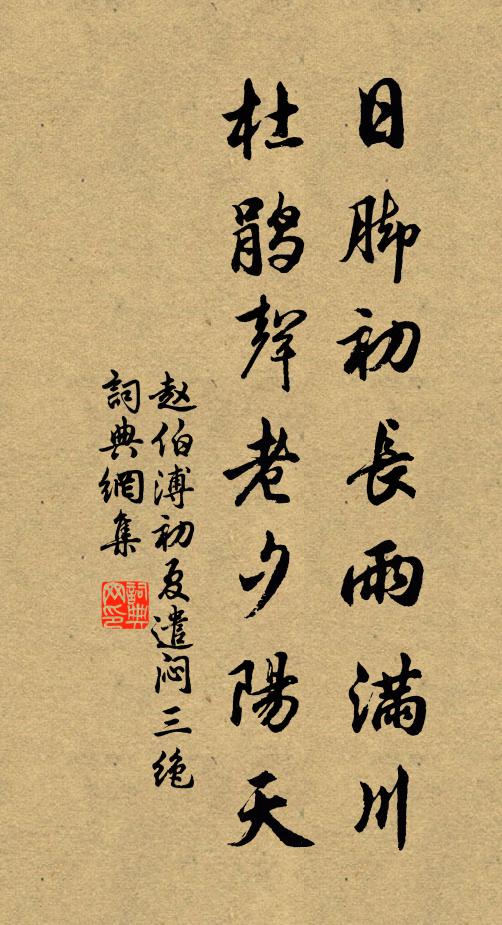 日脚初長雨滿川
杜鹃聲老夕陽天
赵伯溥初夏遣闷三绝
詞典網集
詞典网印